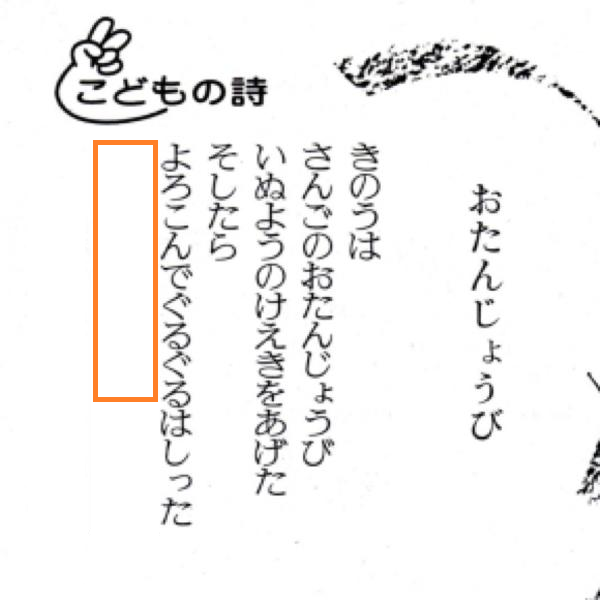 こどもの詩
おたんじょうび
きのうは
さんごのおたんじょうび
いぬようのけえきをあげた
そしたら
よろこんでぐるぐるはしった